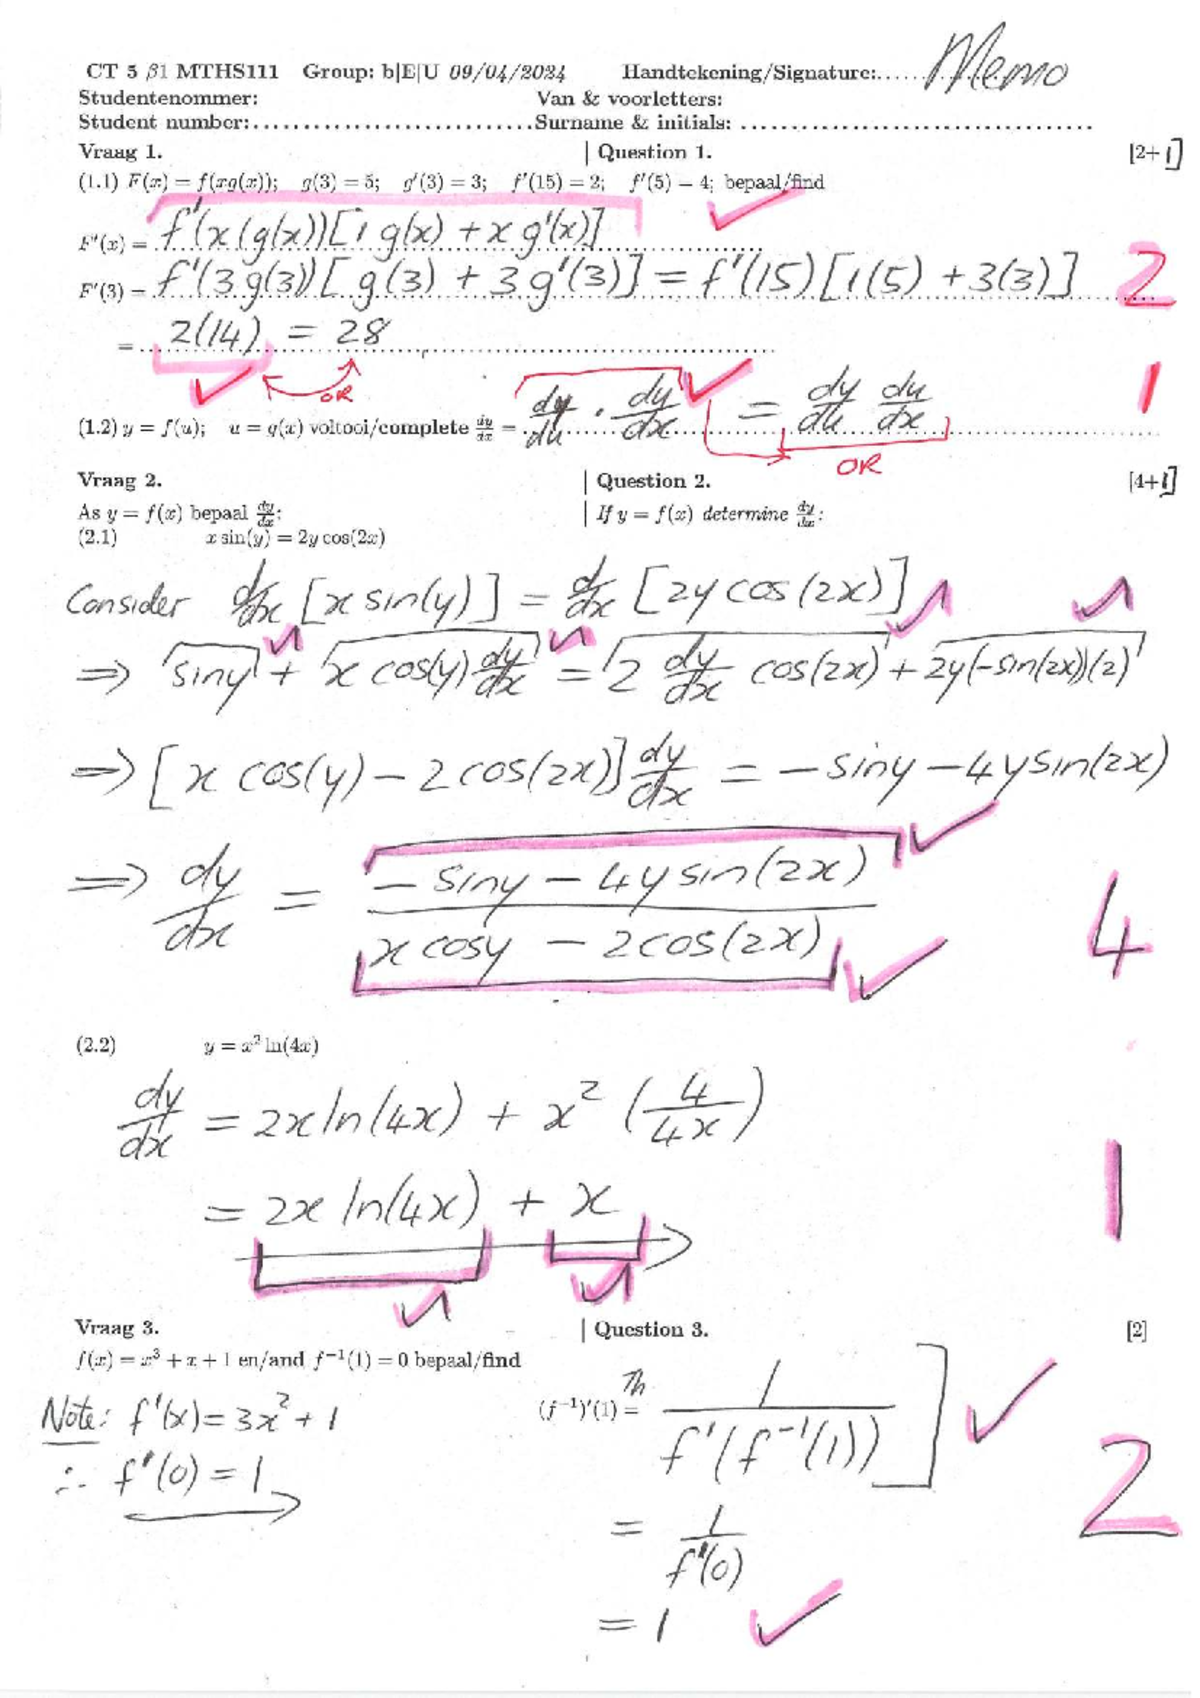 CT 5 β1 MTHS111 Group: b|E|U 09/04/2024 Handtekening/Signature:..... Memo
Studentenommer: Van & voorletters:
Student number:.............................Surname & initials: ...................................
Vraag 1. | Question 1. [2+1]
(1.1) F(x) = f(xg(x)); g(3) = 5; g'(3) = 3; f'(15) = 2; f'(5) = 4; bepaal/find
F'(x) = f'(x(g(x))[1 g(x) + x g'(x)]
F'(3) = f'(3g(3))[g(3) + 3g'(3)] = f'(15)[1(5) + 3(3)] 2
= 2(14) = 28
OR
1
(1.2) y = f(u); u = g(x) voltooi/complete dy/dx = dy/du · du/dx = dy/du du/dx
OR
Vraag 2. | Question 2. [4+1]
As y = f(x) bepaal dy/dx: | If y = f(x) determine dy/dx:
(2.1) x sin(y) = 2y cos(2x)
Consider d/dx [x sin(y)] = d/dx [2y cos(2x)]
⇒ siny + x cos(y) dy/dx = 2 dy/dx cos(2x) + 2y(-sin(2x))(2)
⇒ [x cos(y) - 2cos(2x)] dy/dx = -siny - 4ysin(2x)
⇒ dy/dx = (-siny - 4ysin(2x))/(x cosy - 2cos(2x)) 4
(2.2) y = x² ln(4x)
dy/dx = 2x ln(4x) + x² (4/4x)
= 2x ln(4x) + x 1
Vraag 3. | Question 3. [2]
f(x) = x³ + x + 1 en/and f⁻¹(1) = 0 bepaal/find
Note: f'(x) = 3x² + 1
∴ f'(0) = 1
(f⁻¹)'(1) = Th 1/(f'(f⁻¹(1))) 2
= 1/f'(0)
= 1